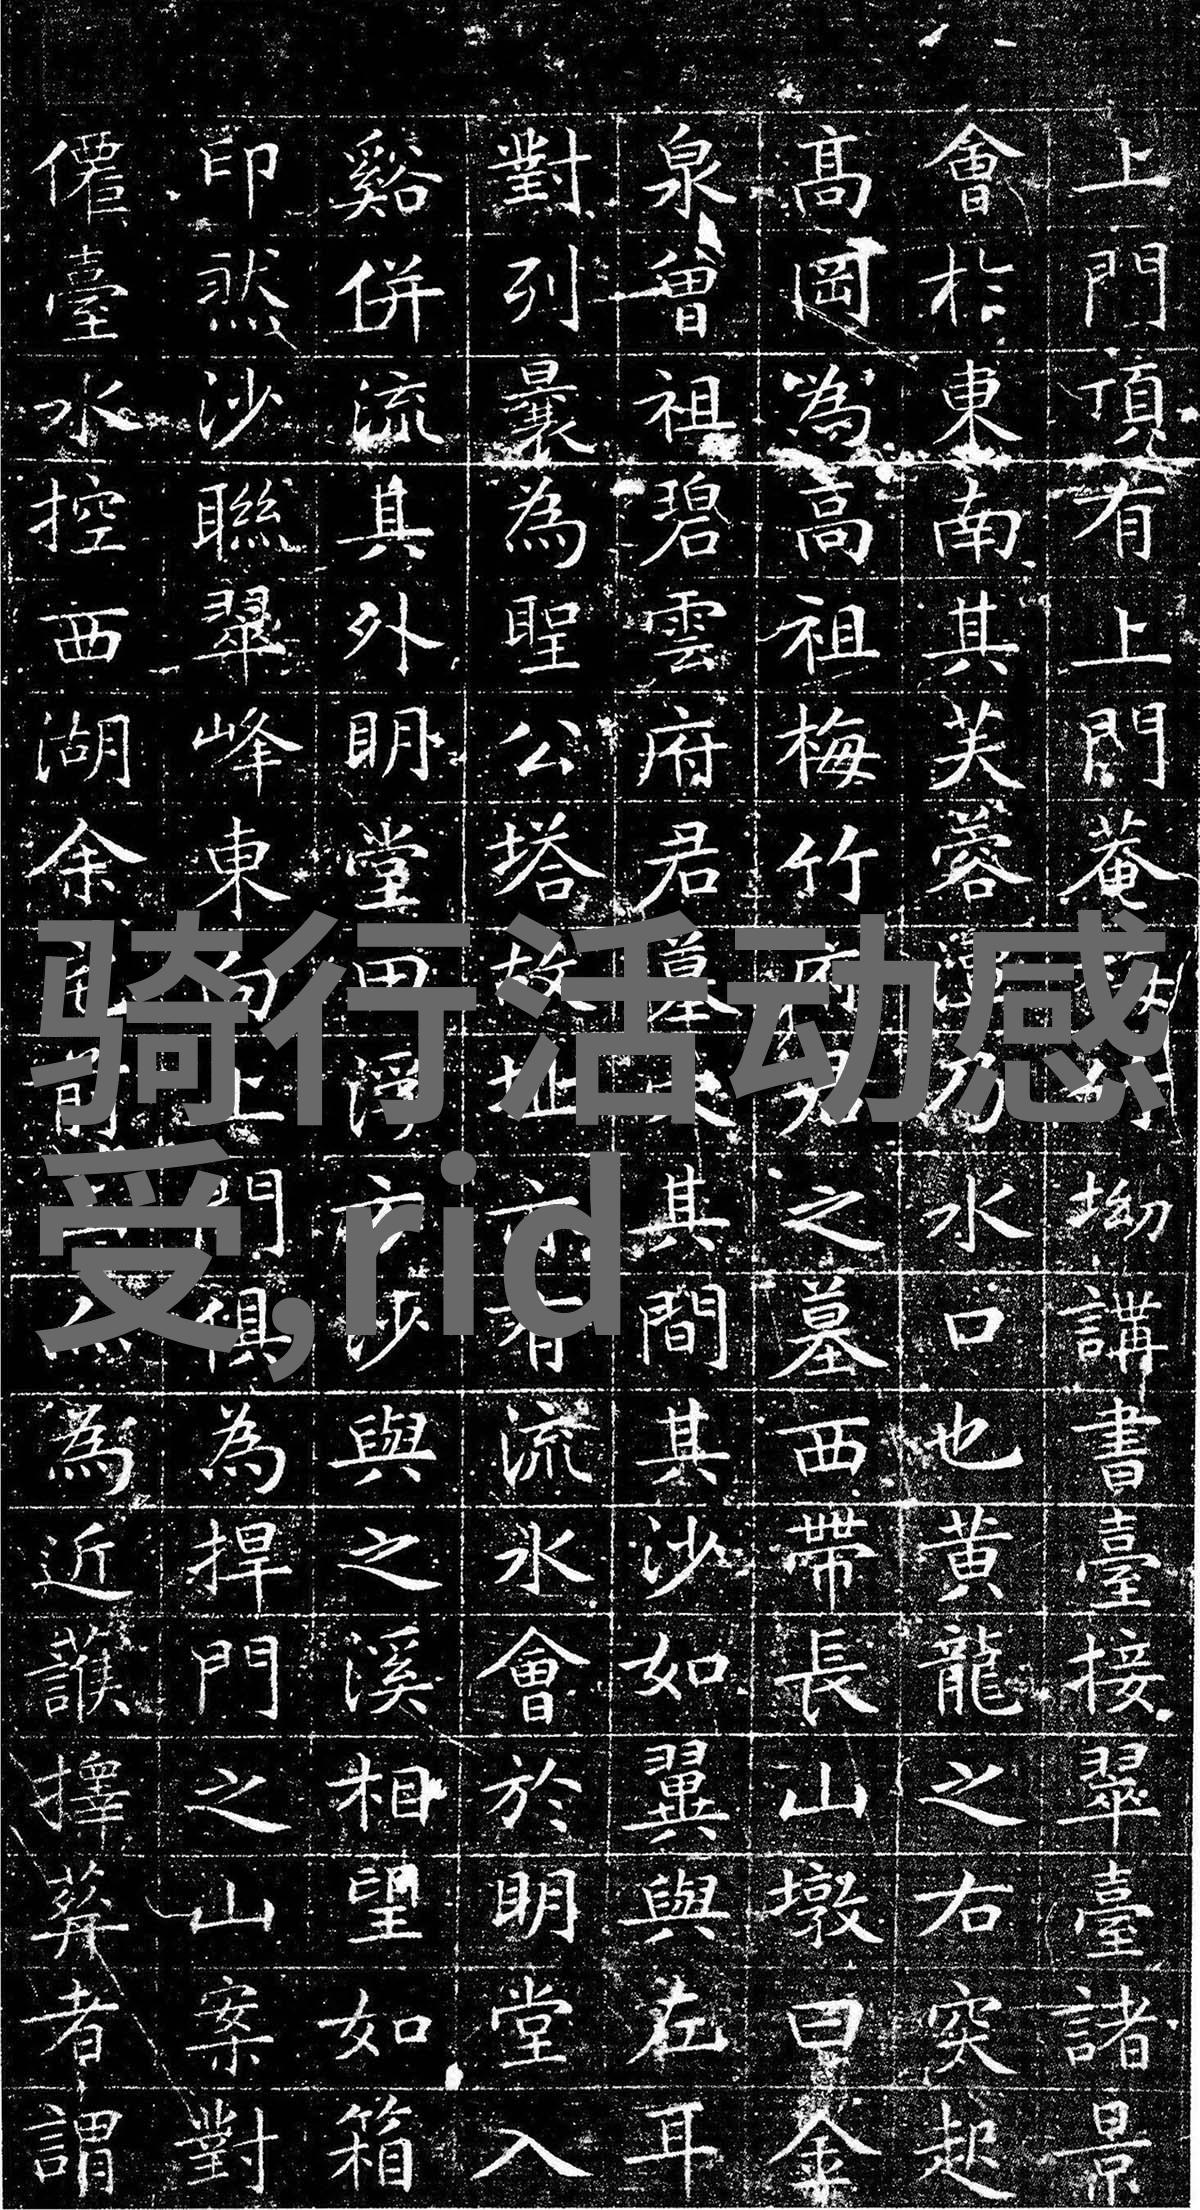 上門頂有上門菴梅竹坳講書臺接翠臺諸景
會於東南其芙蓉潭乃水口也黄龍之右突起
髙岡為高祖梅竹府君之墓西帶長山墩曰金
泉曾祖碧雲府君墓在其間其沙如翼與左耳
對列曩為聖公塔故址亦有流水會於明堂入
谿併流其外明堂田浮方沙與之溪相望如箱
印然沙聯翠峰東向上門俱為捍門之山案對
僊臺水控西湖余為近護擇葬者謂
骑行活动感
受,rid